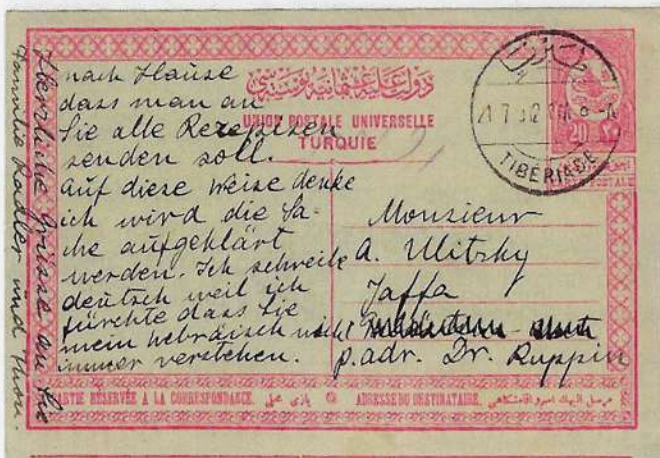 دولت عليۀ عثمانیه پوسته سی
UNION POSTALE UNIVERSELLE
TURQUIE
TIBERIADE
20
nach Hause
dass man an
Sie alle Rezepisen
senden soll.
Auf diese Weise denke
ich wird die Sa-
che aufgeklärt
werden. Ich schreibe
deutsch weil ich
fürchte dass Sie
mein hebräisch nicht
immer verstehen.
Herzliche Grüsse an Sie
Familie Radler und
Monsieur
A. Ulitzky
Jaffa
p. adr. Dr. Ruppin
PARTIE RÉSERVÉE A LA CORRESPONDANCE.
ADRESSE DU DESTINATAIRE.